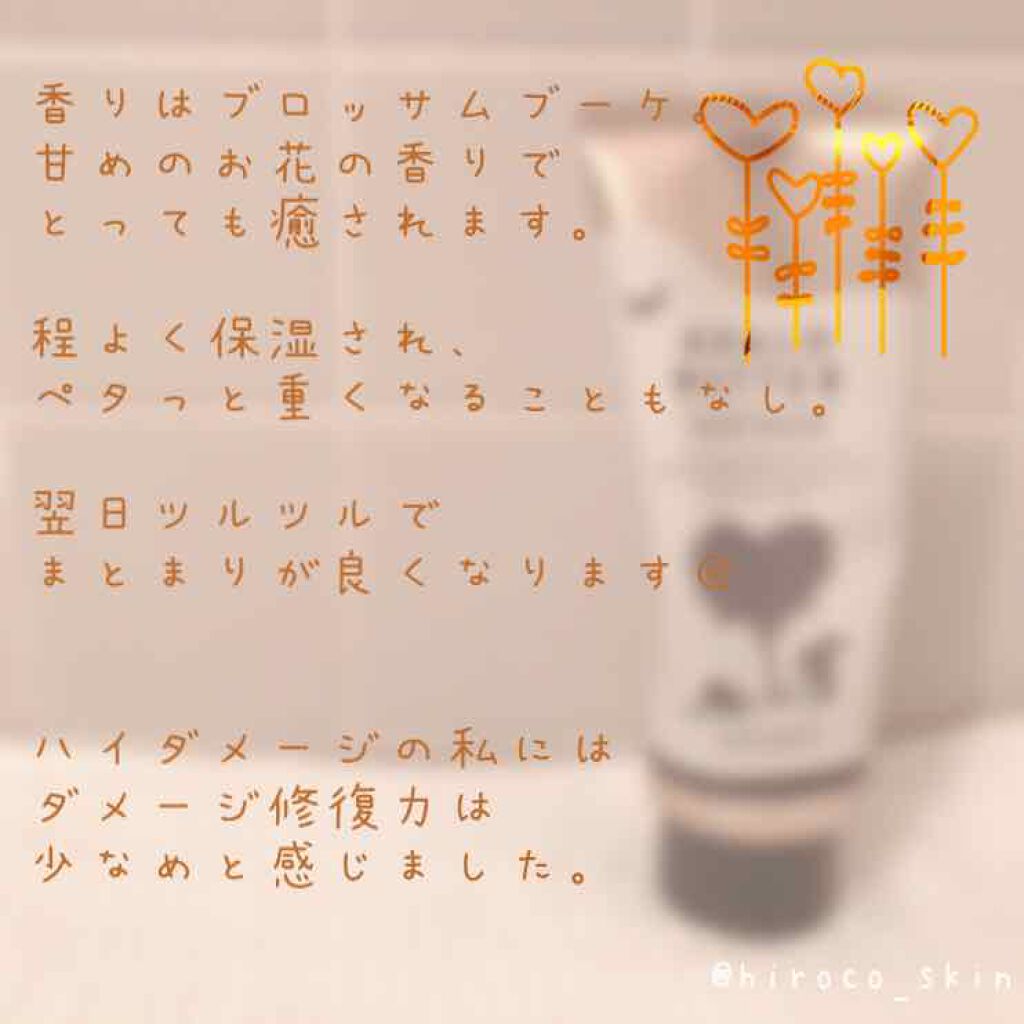 香りはブロッサムブーケ。
甘めのお花の香りで
とっても癒されます。
程よく保湿され、
ペタっと重くなることもなし。
翌日ツルツルで
まとまりが良くなります◎
ハイダメージの私には
ダメージ修復力は
少なめと感じました。
@hiroco_skin